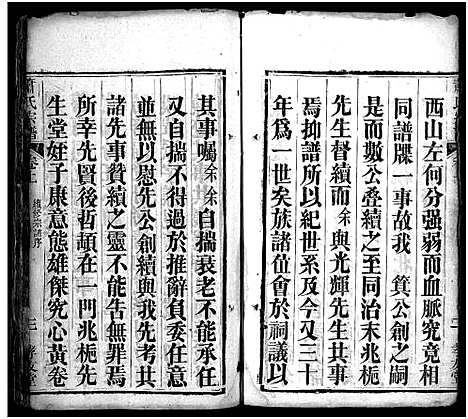 西山左何分强弱而血脈究竟相
同譜牒一事故我 箕公創之嗣
是而數公叠續之至同治末兆梔
先生督續而余與光輝先生其事
焉抑譜所以紀世系及今又三十
年爲一世矣族諸位會於祠議以
其事囑余余自揣衰老不能承任
又自揣不得過於推辭負委任意
並無以慰先公創續與我先考其
諸先事賛續之靈不能告無罪焉
所幸先賢後哲頡在一門兆梔先
生堂姪子康意態雄傑究心黃卷
蕭氏宗譜
續修宗譜序
三